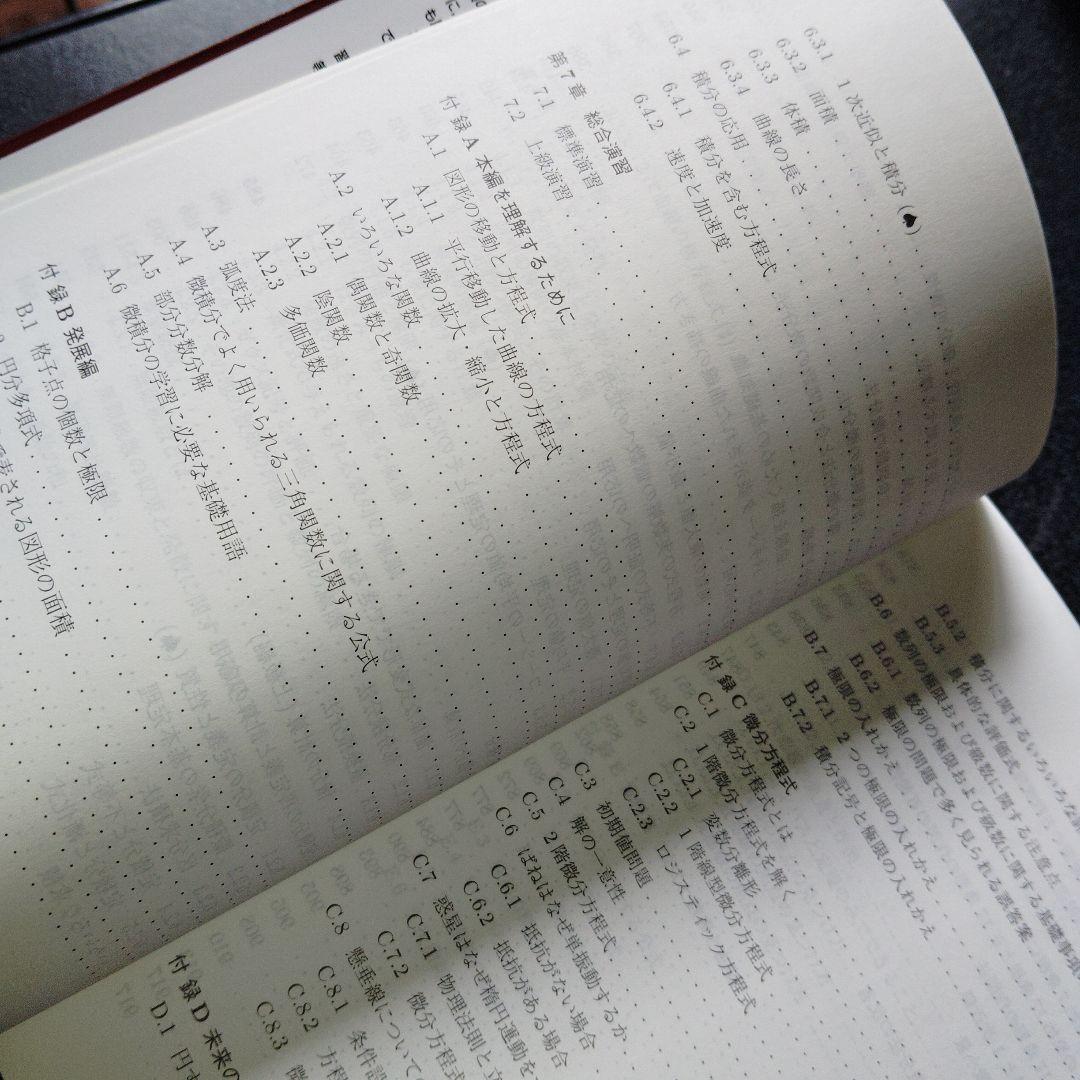 6.3.1 1次近似と積分(♠)
6.3.2 面積
6.3.3 体積
6.3.4 曲線の長さ
6.4 積分の応用
6.4.1 積分を含む方程式
6.4.2 速度と加速度
第7章 総合演習
7.1 標準演習
7.2 上級演習
付録A 本編を理解するために
A.1 図形の移動と方程式
A.1.1 平行移動した曲線の方程式
A.1.2 曲線の拡大・縮小と方程式
A.2 いろいろな関数
A.2.1 偶関数と奇関数
A.2.2 陰関数
A.2.3 多価関数
A.3 弧度法
A.4 微積分でよく用いられる三角関数に関する公式
A.5 部分分数分解
A.6 微積分の学習に必要な基礎用語
付録B 発展編
B.1 格子点の個数と極限
円分多項式
表される図形の面積
B.5.2 積分に関するいろいろな
B.5.3 具体的な評価式
B.6 数列の極限および級数に関する注意点
B.6.1 数列の極限および級数に関する基礎事項
B.6.2 極限の問題で多く見られる誤答案
B.7 極限の入れかえ
B.7.1 2つの極限の入れかえ
B.7.2 積分記号と極限の入れかえ
付録C 微分方程式
C.1 微分方程式とは
C.2 1階微分方程式を解く
C.2.1 変数分離形
C.2.2 1階線型微分方程式
C.2.3 ロジスティック方程式
C.3 初期値問題
C.4 解の一意性
C.5 2階微分方程式
C.6 ばねはなぜ単振動するか
C.6.1 抵抗がない場合
C.6.2 抵抗がある場合
C.7 惑星はなぜ楕円運動を
C.7.1 物理法則と立
C.7.2 微分方程式
C.8 懸垂線について
C.8.1 条件設
C.8.2 方程
C.8.3 微
付録D 未来の
D.1 円